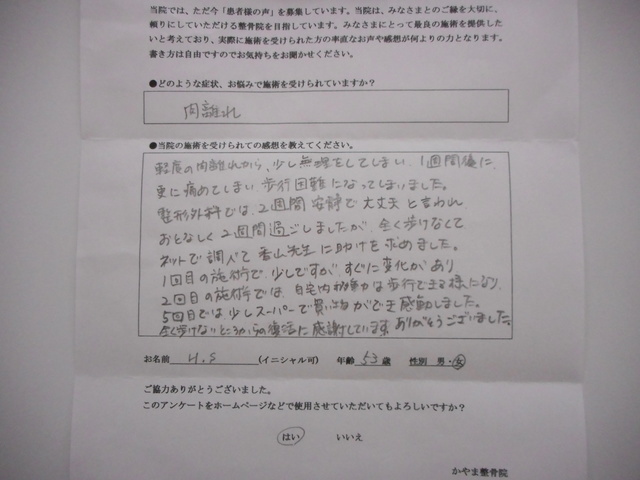 当院では、ただ今「患者様の声」を募集しています。当院は、みなさまとのご縁を大切に、
頼りにしていただける整骨院を目指しています。みなさまにとって最良の施術を提供した
いと考えており、実際に施術を受けられた方の率直なお声や感想が何よりの力となります。
書き方は自由ですのでお気持ちをお聞かせください。
●どのような症状、お悩みで施術を受けられていますか？
肉離れ
●当院の施術を受けられての感想を教えてください。
軽度の肉離れから、少し無理をしてしまい、1週間後に、
更に痛めてしまい 歩行困難になってしまいました。
整形外科では、2週間安静で大丈夫と言われ
おとなしく2週間過ごしましたが、全く歩けなくて
ネットで調べて 香山先生に助けを求めました。
1回目の施術で、少しですが、すぐに変化があり
2回目の施術では、自宅内は歩行できる様になり、
5回目では少しスーパーで買い物ができ感動しました。
全く歩けないところからの復活に感謝しています。ありがとうございました。
お名前 H.S (イニシャル可) 年齢 53 歳 性別 男・女
ご協力ありがとうございました。
このアンケートをホームページなどで使用させていただいてもよろしいですか？
はい いいえ
かやま整骨院